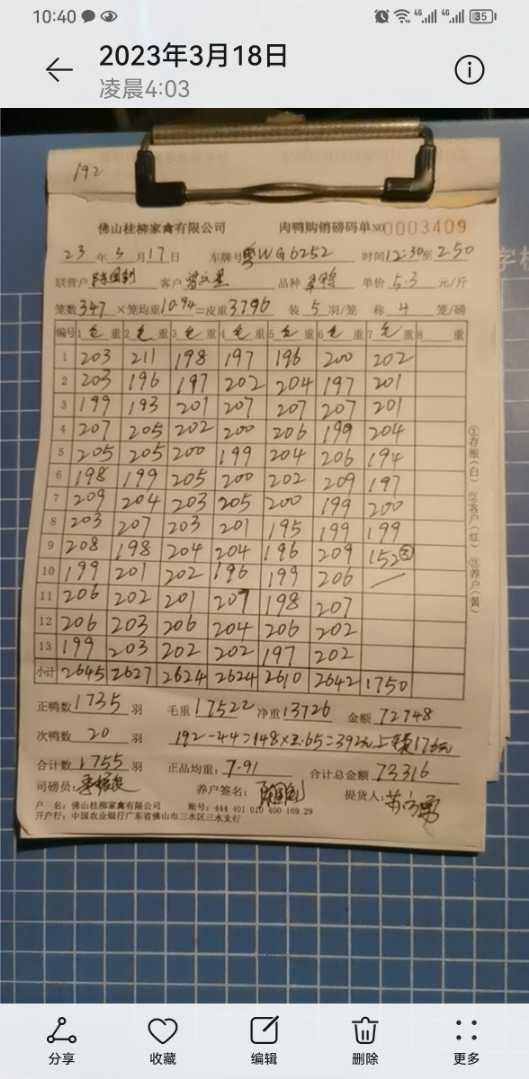 10:40 4G 4G 35
2023年3月18日
凌晨4:03
192
佛山桂柳家禽有限公司 肉鸭购销磅码单 NO 0003409
23 年 3 月 17 日 车牌号 粤WG6252 时间 12:30 至 2:50
联营户 客户 品种 单价 5.3 元/斤
笼数 347 ×笼均重 10.94 =皮重 3796 装 5 羽/笼 称 4 笼/磅
编号 1 毛 重 2 毛 重 3 毛 重 4 毛 重 5 毛 重 6 毛 重 7 毛 重 8 重
1 203 211 198 197 196 200 202
2 203 196 197 202 204 197 201
3 199 193 201 207 207 207 201
4 207 205 202 200 206 199 204
5 205 205 200 199 204 206 194
6 198 199 205 200 202 209 197
7 209 204 203 205 200 199 200
8 203 207 203 201 195 199 199
9 208 198 204 204 196 209 152③
10 199 201 202 196 199 206
11 206 202 201 207 198 207
12 206 203 206 204 206 202
13 199 203 202 202 197 202
小计 2645 2627 2624 2624 2610 2642 1750
①存根(白) ②客户(红) ③养户(黄)
正鸭数 1735 羽 毛重 17522 净重 13726 金额 72748
次鸭数 20 羽 192-44=148×2.65=392元 176元
合计数 1755 羽 正品均重: 7.91 合计总金额 73316
司磅员: 养户签名: 提货人:
户 名: 佛山桂柳家禽有限公司 账号: 444 401 010 400 169 29
开户行: 中国农业银行广东省佛山市三水区三水支行
分享 收藏 编辑 删除 更多